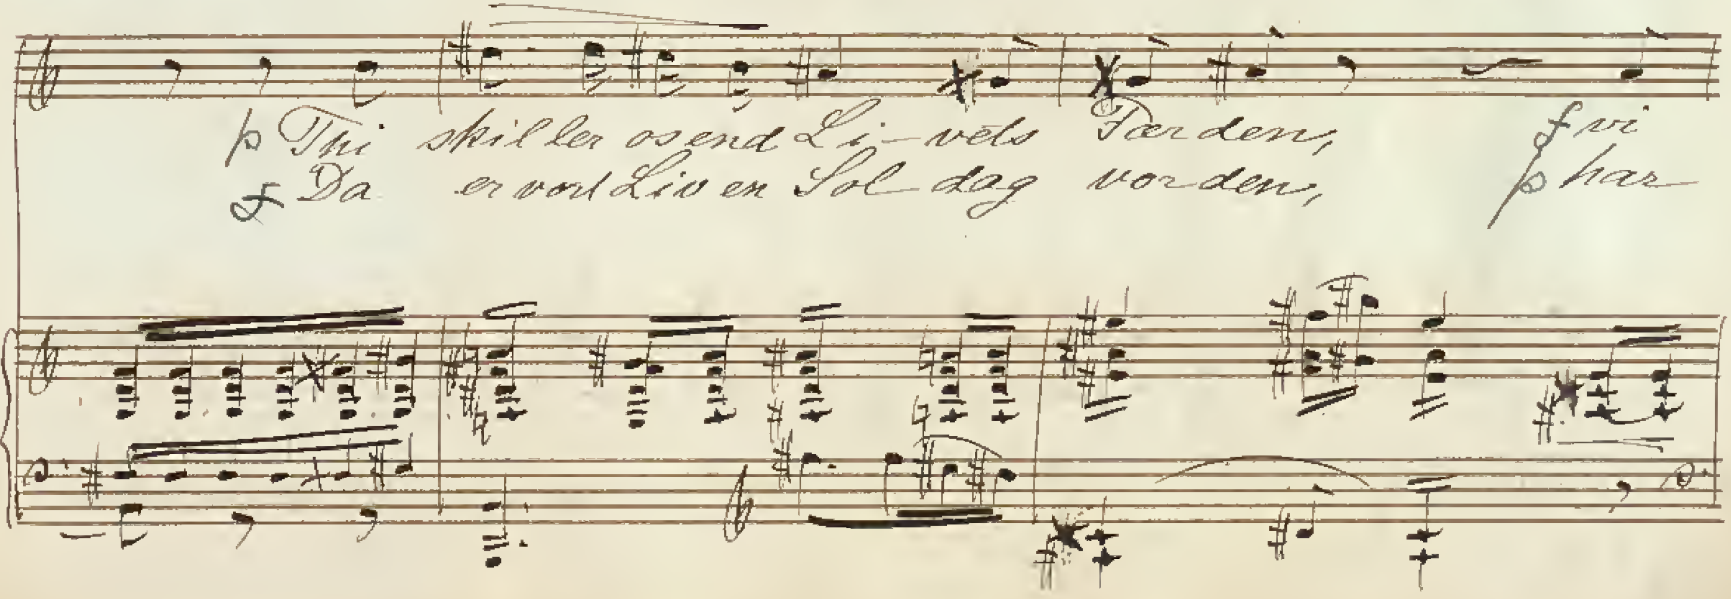 p Thi skil ler os end Li - vets Færden, f vi
f Da er vort Liv en Sol dag vorden, p har